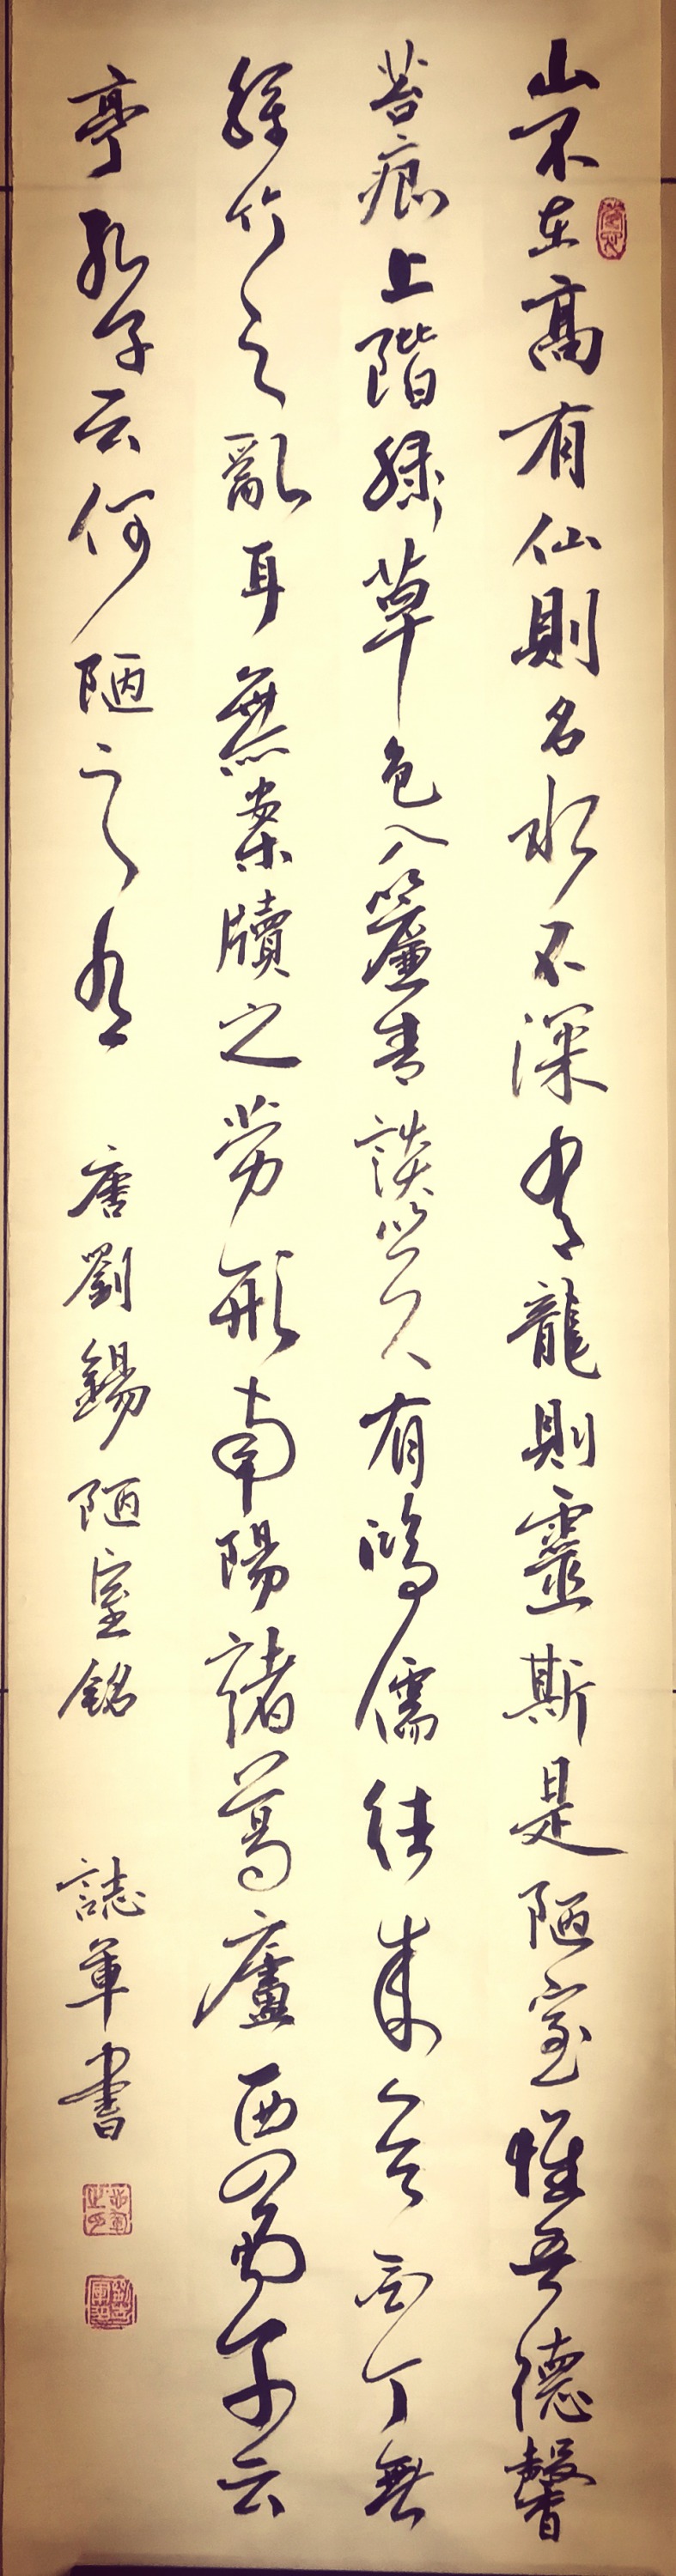 山不在高有仙則名水不深有龍則靈斯是陋室惟吾德馨
苔痕上階綠草色入簾青談笑有鴻儒往來無白丁無
絲竹之亂耳無案牘之勞形南陽諸葛廬西蜀子云
亭孔子云何陋之有 唐劉錫陋室銘 誌軍書